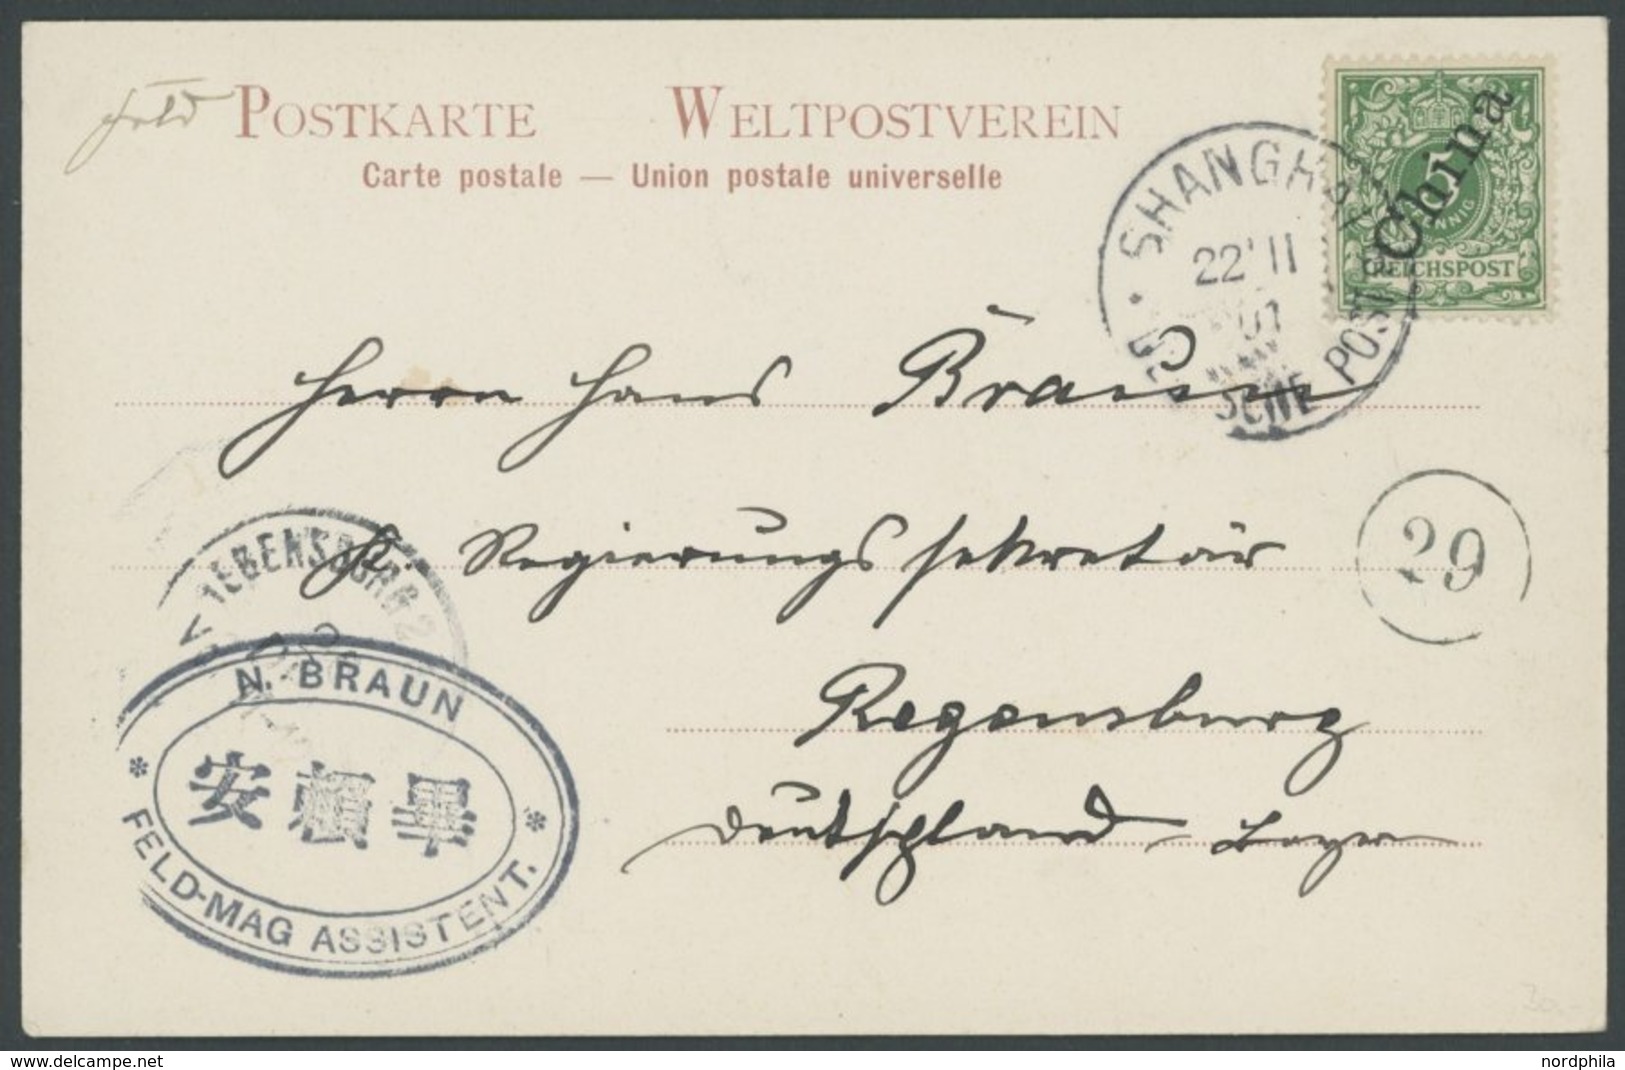 POSTKARTE WELTPOSTVEREIN
Carte postale — Union postale universelle
China
5
REICHSPOST
SHANGHAI
22 11
01
DEUTSCHE POST
Herrn Hans Braun
K. Regierungssekretär
29
Regensburg
Deutschland Bayern
N. BRAUN
安賴畢
* FELD-MAG ASSISTENT. *
www.delcampe.net
nordphila